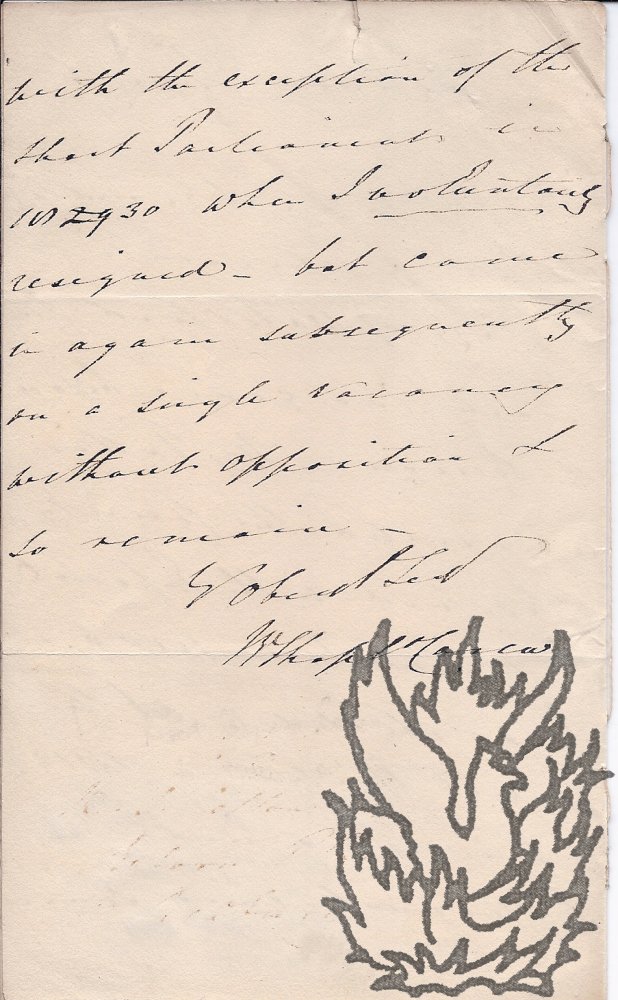 with the exception of the
short Parliament in
1829 30 when I voluntarily
resigned – but came
in again subsequently
on a single vacancy
without opposition &
so remain –
Yr Obedt Sert